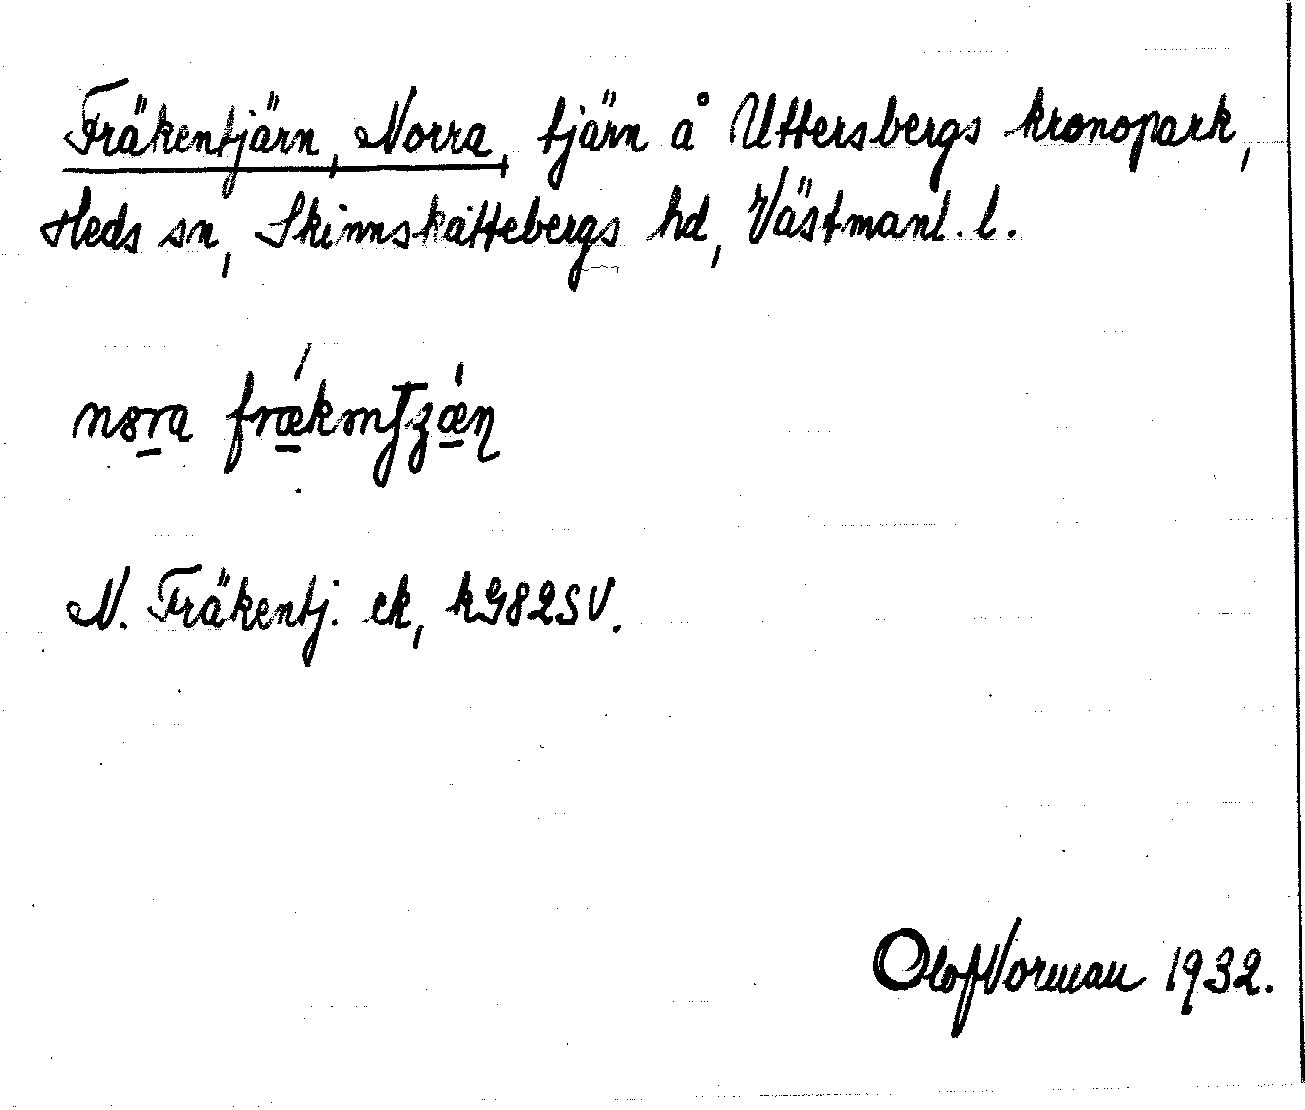 Fräkentjärn, Norra, tjärn å Uttersbergs kronopark,
Heds sn, Skinnskattebergs hd, Västmanl. l.
N. Fräkentj. ek, k982SV.
Olof Vorman 1932.